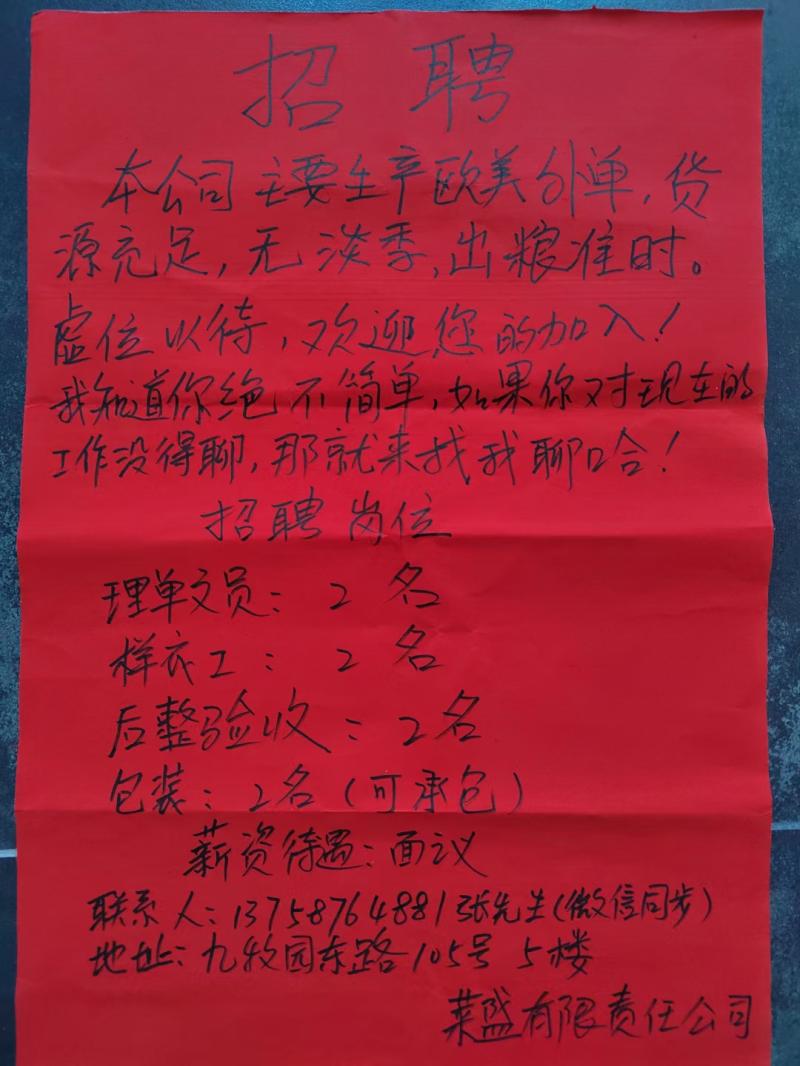 招聘
本公司主要生产欧美外单，货
源充足，无淡季，出粮准时。
虚位以待，欢迎您的加入！
我知道你绝不简单，如果你对现在的
工作没得聊，那就来找我聊哈！
招聘岗位
理单文员：2名
样衣工：2名
后整验收：2名
包装：2名（可承包）
薪资待遇：面议
联系人：13758764881张先生（微信同步）
地址：九牧园东路105号5楼
莱盛有限责任公司